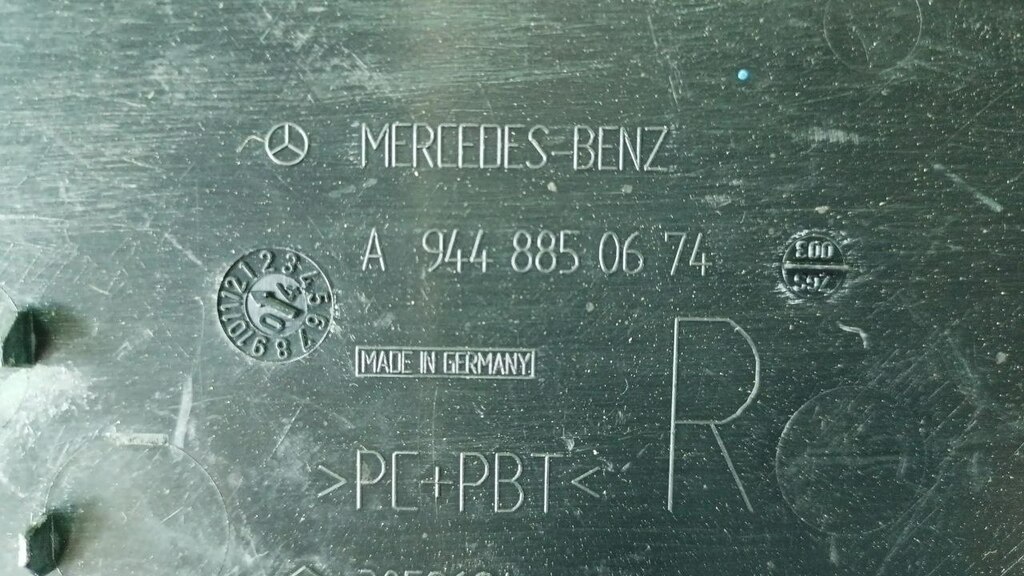 MERCEDES-BENZ
A 944 885 06 74
003
1 2 3 4 5 6 7 8 9 10 11 12
0 4
MADE IN GERMANY
R
>PC+PBT<